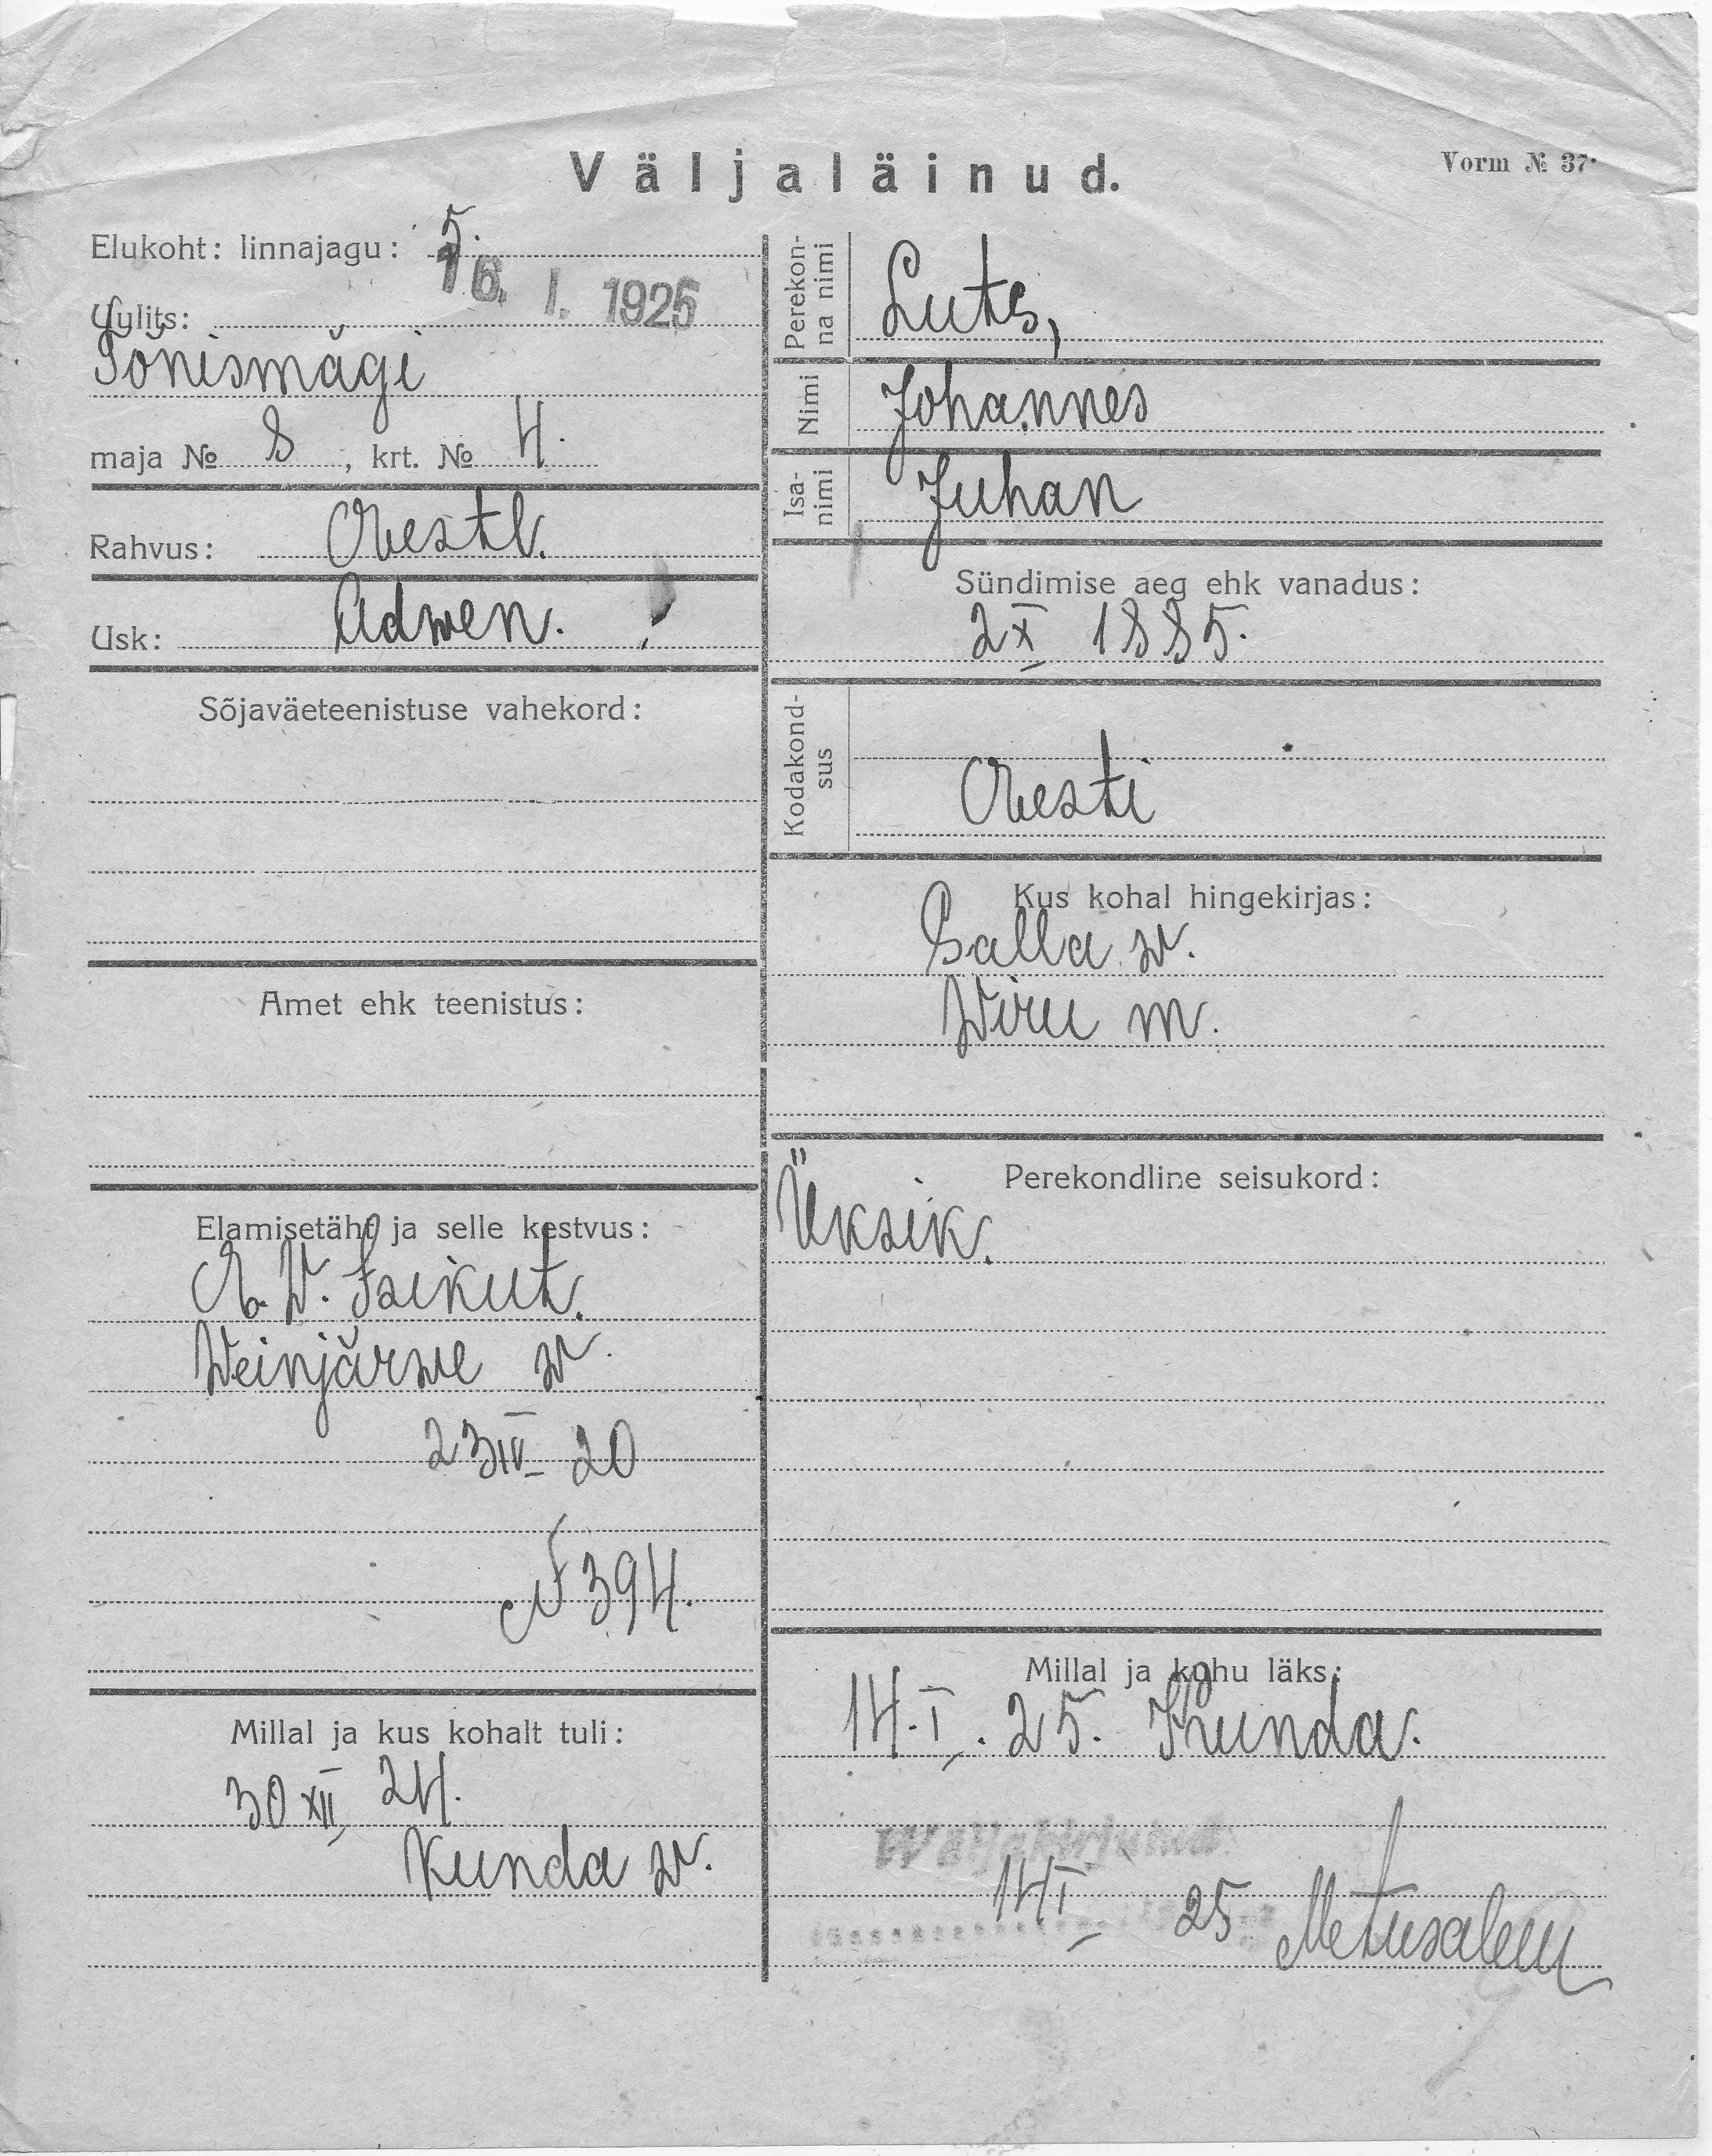 Väljaläinud.
Vorm № 37.
Elukoht: linnajagu: 5.
16. I. 1925
Uulits:
Tõnismägi
maja № 8, krt. № 4.
Rahvus: Eestl.
Usk: Adwen.
Sõjaväeteenistuse vahekord:
Amet ehk teenistus:
Elamisetäht ja selle kestvus:
E. W. Isikut.
Weinjärwe w.
23 IV 20
N 394.
Millal ja kus kohalt tuli:
30 XII 24.
Kunda w.
Perekon-
na nimi
Luts,
Nimi
Johannes
Isa-
nimi
Juhan
Sündimise aeg ehk vanadus:
2 X 1885.
Kodakond-
sus
Eesti
Kus kohal hingekirjas:
Salla w.
Wiru m.
Perekondline seisukord:
Üksik.
Millal ja kuhu läks:
14. I. 25. Kunda.
Wäljakirjutud
14 I 25 Metusalem